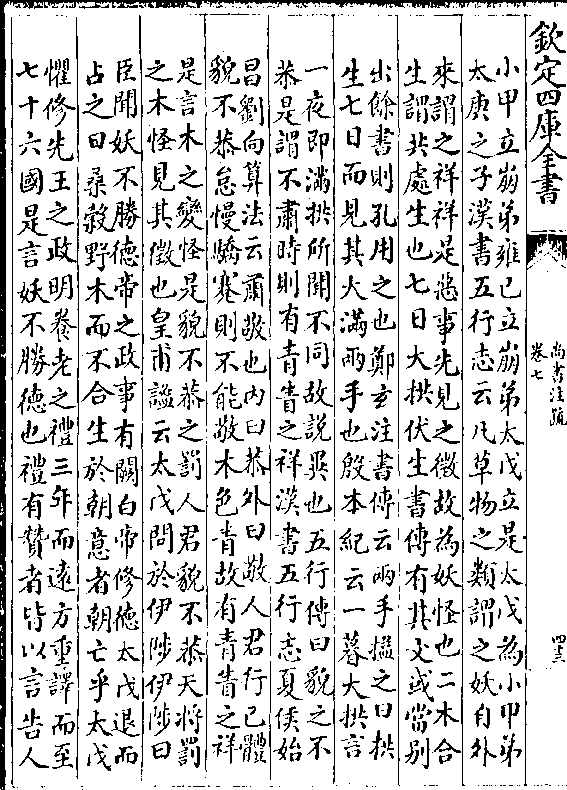 欽定四庫全書
尚書注疏
卷七
四三
小甲立崩弟雍已立崩弟太戊立是太戊為小甲弟
太庚之子漢書五行志云凡草物之類謂之妖自外
來謂之祥祥是惡事先見之徵故為妖怪也二木合
生謂共處生也七日大拱伏生書傳有其文或當别
出餘書則孔用之也鄭玄注書傳云兩手搤之曰拱
生七日而見其大滿兩手也殷本紀云一暮大拱言
一夜即滿拱所聞不同故説異也五行傳曰貌之不
恭是謂不肅時則有青眚之祥漢書五行志夏侯始
昌劉向算法云肅敬也内曰恭外曰敬人君行已體
貌不恭怠慢驕蹇則不能敬木色青故有青眚之祥
是言木之變怪是貌不恭之罰人君貌不恭天將罰
之木怪見其徵也皇甫謐云太戊問於伊陟伊陟曰
臣聞妖不勝德帝之政事有闕白帝修德太戊退而
占之曰桑榖野木而不合生於朝意者朝亡乎太戊
懼修先王之政明養老之禮三年而遠方重譯而至
七十六國是言妖不勝德也禮有贊者皆以言告人